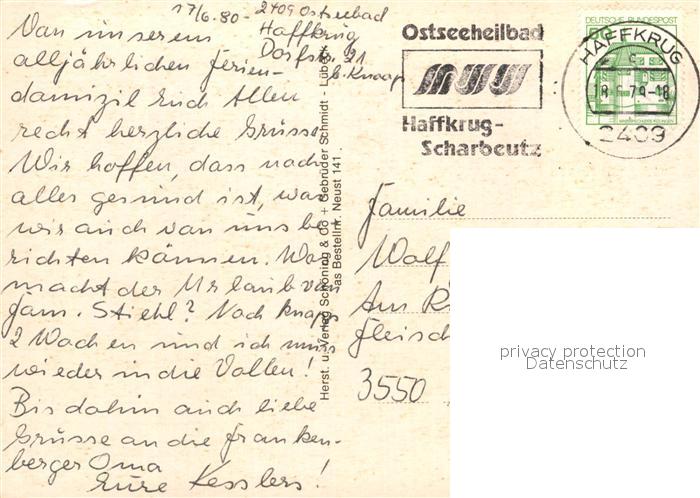 17/6.80 - 2409 Ostseebad
Haffkrug
Dorfstr. 21
b. Knaap
Von unserem
alljährlichen Ferien-
damizil Euch Allen
recht herzliche Grüsse
Wir hoffen, dass noch
alles gesund ist, was
wir auch von uns be
richten können. Was
macht der Urlaub von
Fam. Stiehl? Noch knapp
2 Wochen und ich muss
wieder in die Vollen!
Bis dahin auch liebe
Grüsse an die Franken-
berger Oma
Eure Kesslers!
Herst. u. Verlag Schöning & Co + Gebrüder Schmidt - Lübeck
as Bestellnr. Neust 141
Ostseeheilbad
Haffkrug-
Scharbeutz
DEUTSCHE BUNDESPOST
HAFFKRUG
18
2409
Familie
Wolf
Am
Fleisch
3550
privacy protection
Datenschutz